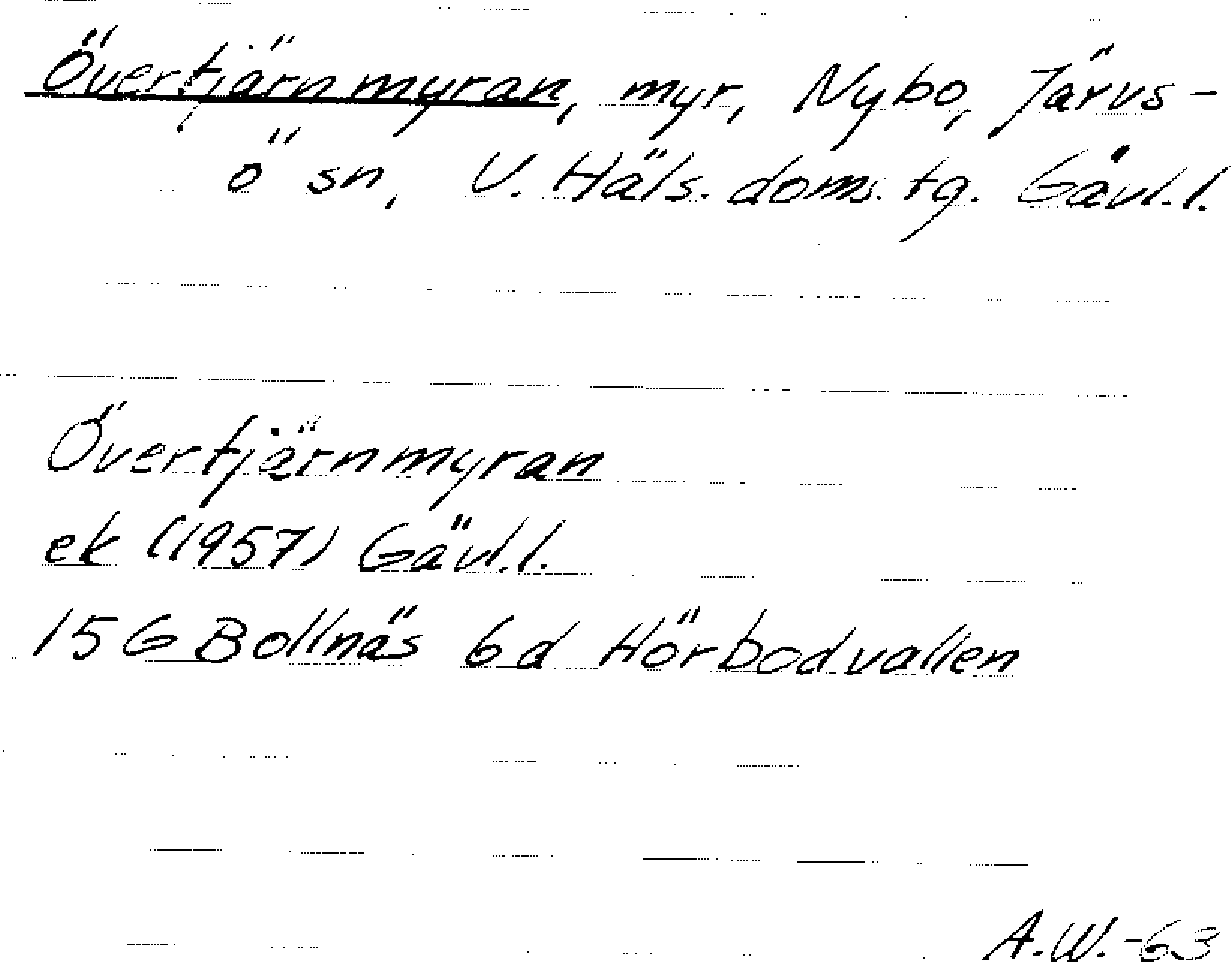 Övertjärnmyran, myr, Nybo, Järvs-
ö sn, V. Häls. doms. tg. Gävl.l.
Övertjärnmyran
ek (1957) Gävl.l.
15G Bollnäs 6d Hörbodvallen
A.W.-63